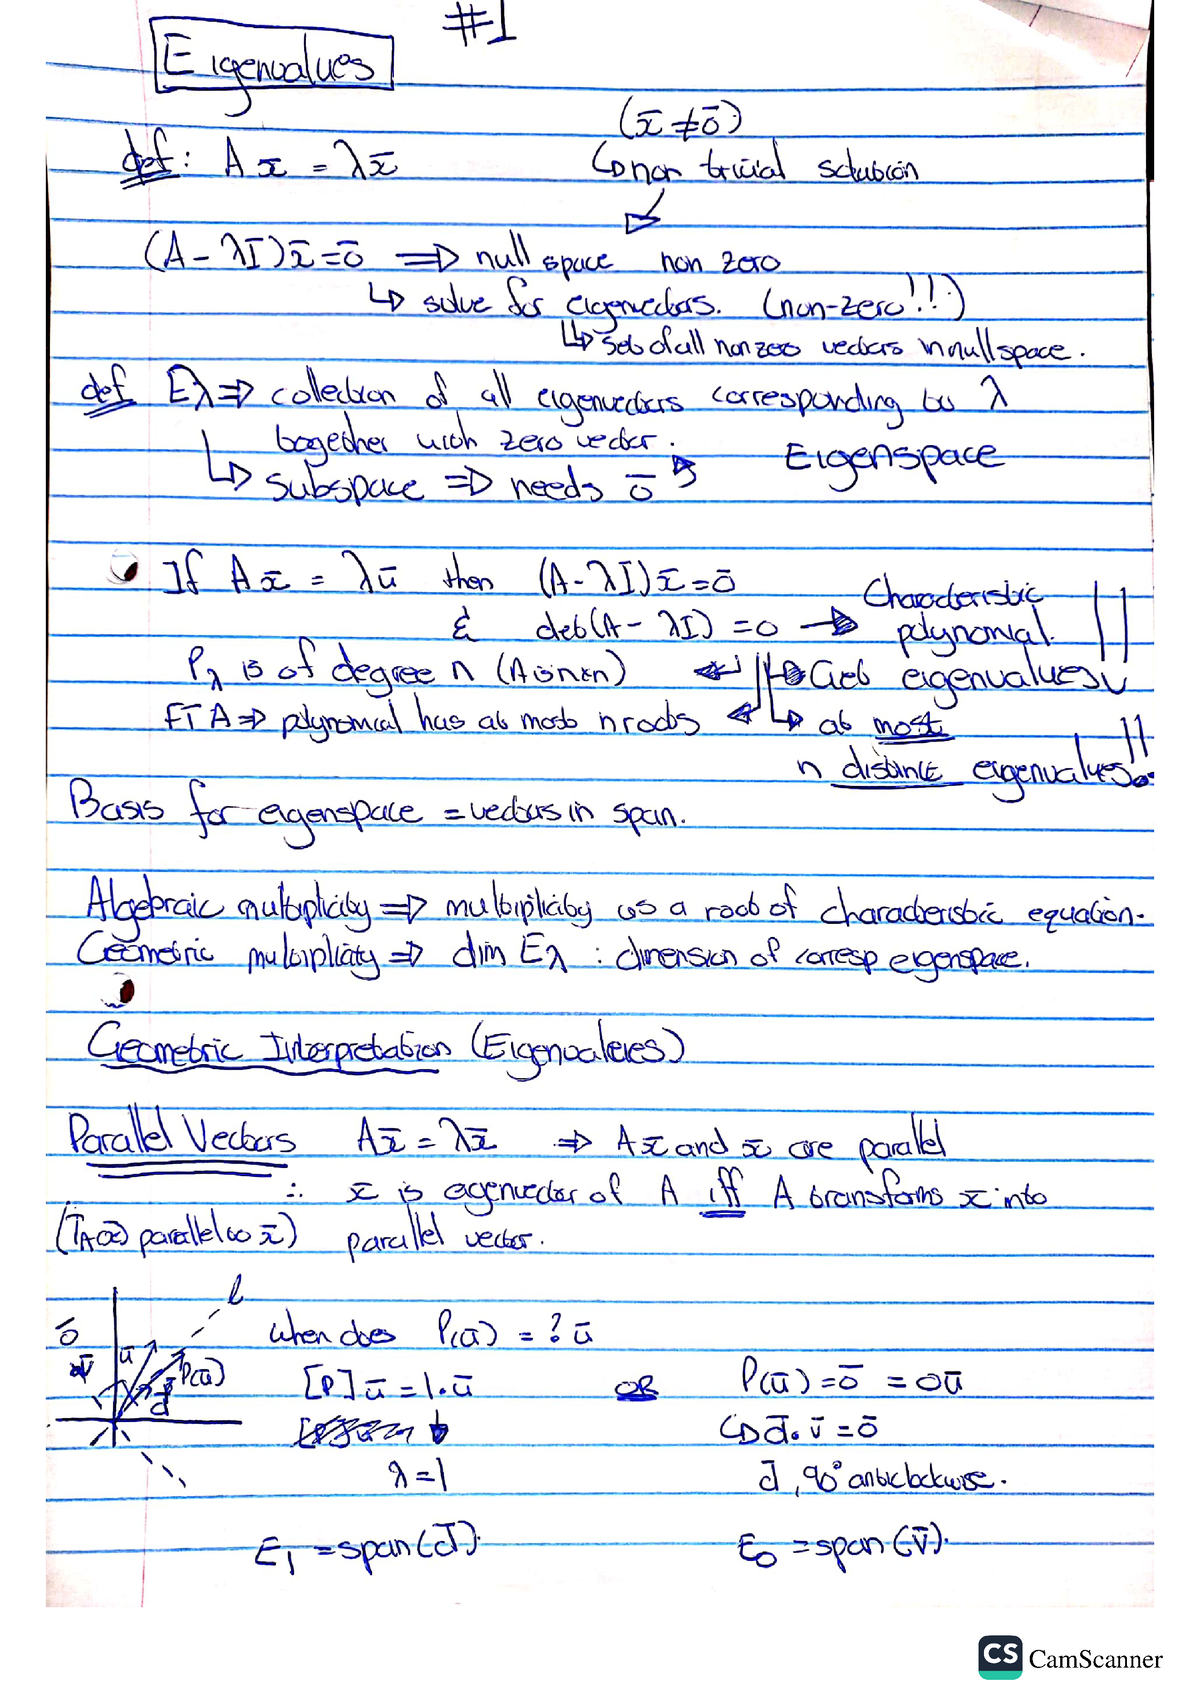 #1
Eigenvalues
(x̄ ≠ ō)
def: A x̄ = λx̄ ↳ non trivial solution
(A - λI)x̄ = ō ⇒ null space non zero
↳ solve for eigenvectors. (non-zero!!)
↳ set of all non zero vectors in nullspace.
def Eλ ⇒ collection of all eigenvectors corresponding to λ
together with zero vector.
Eigenspace
↳ subspace ⇒ needs ō
If A x̄ = λū then (A - λI)x̄ = ō
& det(A - λI) = 0 → Characteristic polynomial.
Pλ is of degree n (A is nxn) ↳ Get eigenvalues
FTA ⇒ polynomial has at most n roots ↳ at most
n distinct eigenvalues.
Basis for eigenspace = vectors in span.
Algebraic multiplicity ⇒ multiplicity as a root of characteristic equation.
Geometric multiplicity ⇒ dim Eλ : dimension of corresp eigenspace.
Geometric Interpretation (Eigenvalues)
Parallel Vectors Ax̄ = λx̄ ⇒ Ax̄ and x̄ are parallel
∴ x̄ is eigenvector of A iff A transforms x̄ into
(T_A(x̄) parallel to x̄) parallel vector.
l
ō ū P(ū) d̄ v̄
when does P(ū) = ? ū
[P]ū = 1.ū OR P(ū) = ō = 0ū
↳ d̄. v̄ = ō
λ = 1 d̄, 90° anticlockwise.
E₁ = span(d̄). E₀ = span(v̄).
CS CamScanner